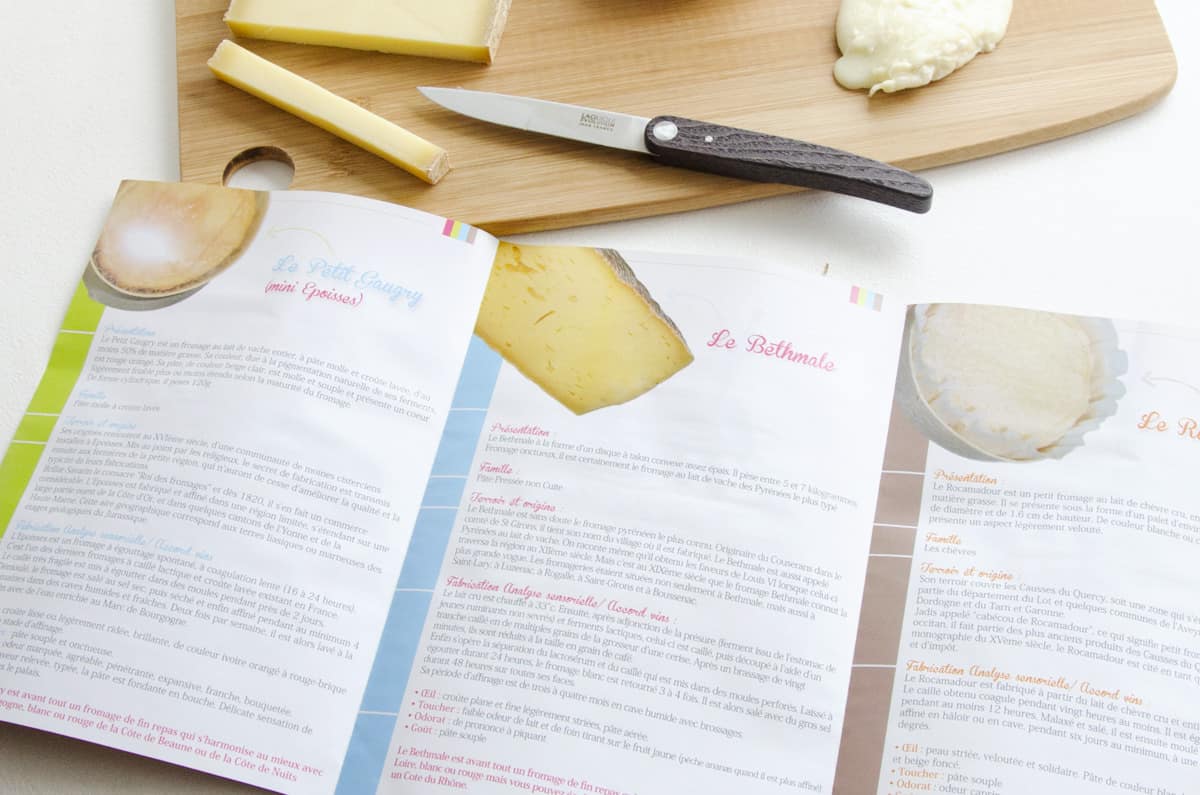 LAGUIOLE
EVOLUTION
Le Petit Gaugry
(mini Epoisses)
Présentation
Le Petit Gaugry est un fromage au lait de vache entier, à pâte molle et croûte lavée, d'au
moins 50% de matière grasse. Sa couleur, due à la pigmentation naturelle de ses ferments,
est rouge orangé. Sa pâte, de couleur beige clair, est molle et souple et présente un coeur
légèrement friable plus ou moins étendu selon la maturité du fromage.
De forme cylindrique, il pèse 120g.
Famille
Pâte molle à croûte lavée
Terroir et origine
Ses origines remontent au XVIème siècle, d'une communauté de moines cisterciens
installés à Epoisses. Mis au point par les religieux, le secret de fabrication est transmis
ensuite aux fermières de la petite région, qui n'auront de cesse d'améliorer la qualité et la
typicité de leurs fabrications.
Brillat-Savarin le consacre "Roi des fromages" et dès 1820, il s'en fait un commerce
considérable. L'Epoisses est fabriqué et affiné dans une région limitée, s'étendant sur une
large partie ouest de la Côte d'Or, et dans quelques cantons de l'Yonne et de la
Haute-Marne. Cette aire géographique correspond aux terres liasiques ou marneuses des
étages géologiques du Jurassique.
Fabrication Analyse sensorielle/ Accord vins
L'Epoisses est un fromage à égouttage spontané, à coagulation lente (16 à 24 heures).
C'est l'un des derniers fromages à caille lactique et croûte lavée existant en France.
caillé très fragile est mis à égoutter dans des moules pendant près de 2 jours.
Démoulé, le fromage est salé au sel sec, puis séché et enfin affiné pendant au minimum 4
semaines dans des caves humides et fraîches. Deux fois par semaine, il est alors lavé à la
avec de l'eau enrichie au Marc de Bourgogne.
croûte lisse ou légèrement ridée, brillante, de couleur ivoire orangé à rouge-brique
stade d'affinage.
pâte souple et onctueuse.
odeur marquée, agréable, pénétrante, expansive, franche, bouquetée.
saveur relevée, typée, la pâte est fondante en bouche. Délicate sensation de
le palais.
est avant tout un fromage de fin repas qui s'harmonise au mieux avec
blanc ou rouge de la Côte de Beaune ou de la Côte de Nuits
Le Bethmale
Présentation :
Le Bethmale à la forme d'un disque à talon convexe assez épais. Il pèse entre 5 et 7 kilogrammes.
Fromage onctueux, il est certainement le fromage au lait de vache des Pyrénées le plus typé
Famille :
Pâte Pressée non Cuite
Terroir et origine :
Le Bethmale est sans doute le fromage pyrénéen le plus connu. Originaire du Couserans dans le
comté de St Girons, il tient son nom du village où il est fabriqué. Le Bethmale est aussi appelé
Pyrénées au lait de vache. On raconte même qu'il obtenu les faveurs de Louis VI lorsque celui-ci
traversa la région au XIIème siècle. Mais c'est au XIXème siècle que le fromage Bethmale connut la
plus grande vogue. Les fromageries étaient situées non seulement à Bethmale, mais aussi à
Saint-Lary, à Luzenac, à Rogalle, à Saint-Girons et à Boussenac.
Fabrication Analyse sensorielle/ Accord vins :
Le lait cru est chauffé à 33°c. Ensuite, après adjonction de la présure (ferment issu de l'estomac de
jeunes ruminants non sevrés) et ferments lactiques, celui-ci est caillé, puis découpé à l'aide d'un
tranche caillé en de multiples grains de la grosseur d'une cerise. Après un brassage de vingt
minutes, ils sont réduits à la taille en grain de café.
Enfin s'opère la séparation du lactosérum et du caillé qui est mis dans des moules perforés. Laissé à
égoutter durant 24 heures, le fromage blanc est retourné 3 à 4 fois. Il est alors salé avec du gros sel
durant 48 heures sur toutes ses faces.
Sa période d'affinage est de trois à quatre mois en cave humide avec brossages.
• Œil : croûte plane et fine légèrement striées, pâte aérée.
• Toucher : faible odeur de lait et de foin tirant sur le fruit jaune (pêche ananas quand il est plus affiné)
• Odorat : de prononcé à piquant
• Goût : pâte souple
Le Bethmale est avant tout un fromage de fin repas
Loire, blanc ou rouge mais vous pouvez
un Cote du Rhône.
Le R
Présentation :
Le Rocamadour est un petit fromage au lait de chèvre cru,
matière grasse. Il se présente sous la forme d'un palet d'env
de diamètre et de 1.6 cm de hauteur. De couleur blanche ou c
présente un aspect légèrement velouté.
Famille
Les chèvres
Terroir et origine :
Son terroir couvre les Causses du Quercy, soit une zone qui s'é
partie du département du Lot et quelques communes de l'Avey
Dordogne et du Tarn et Garonne.
Jadis appelé "cabécou de Rocamadour", ce qui signifie petit fro
occitan, il fait partie des plus anciens produits des Causses du Q
monographie du XVème siècle, le Rocamadour est cité en tant q
et d'impôt.
Fabrication Analyse sensorielle/ Accord vins :
Le Rocamadour est fabriqué à partir du lait de chèvre cru et entier
Le caillé obtenu coagule pendant vingt heures au moins. Il est ég
pendant au moins 12 heures. Malaxé et salé, il est ensuite moulé
affiné en hâloir ou en cave, pendant six jours au minimum, à une
degrés.
• Œil : peau striée, veloutée et solidaire. Pâte de couleur blan
et beige foncé.
• Toucher : pâte souple
• Odorat : odeur caprin